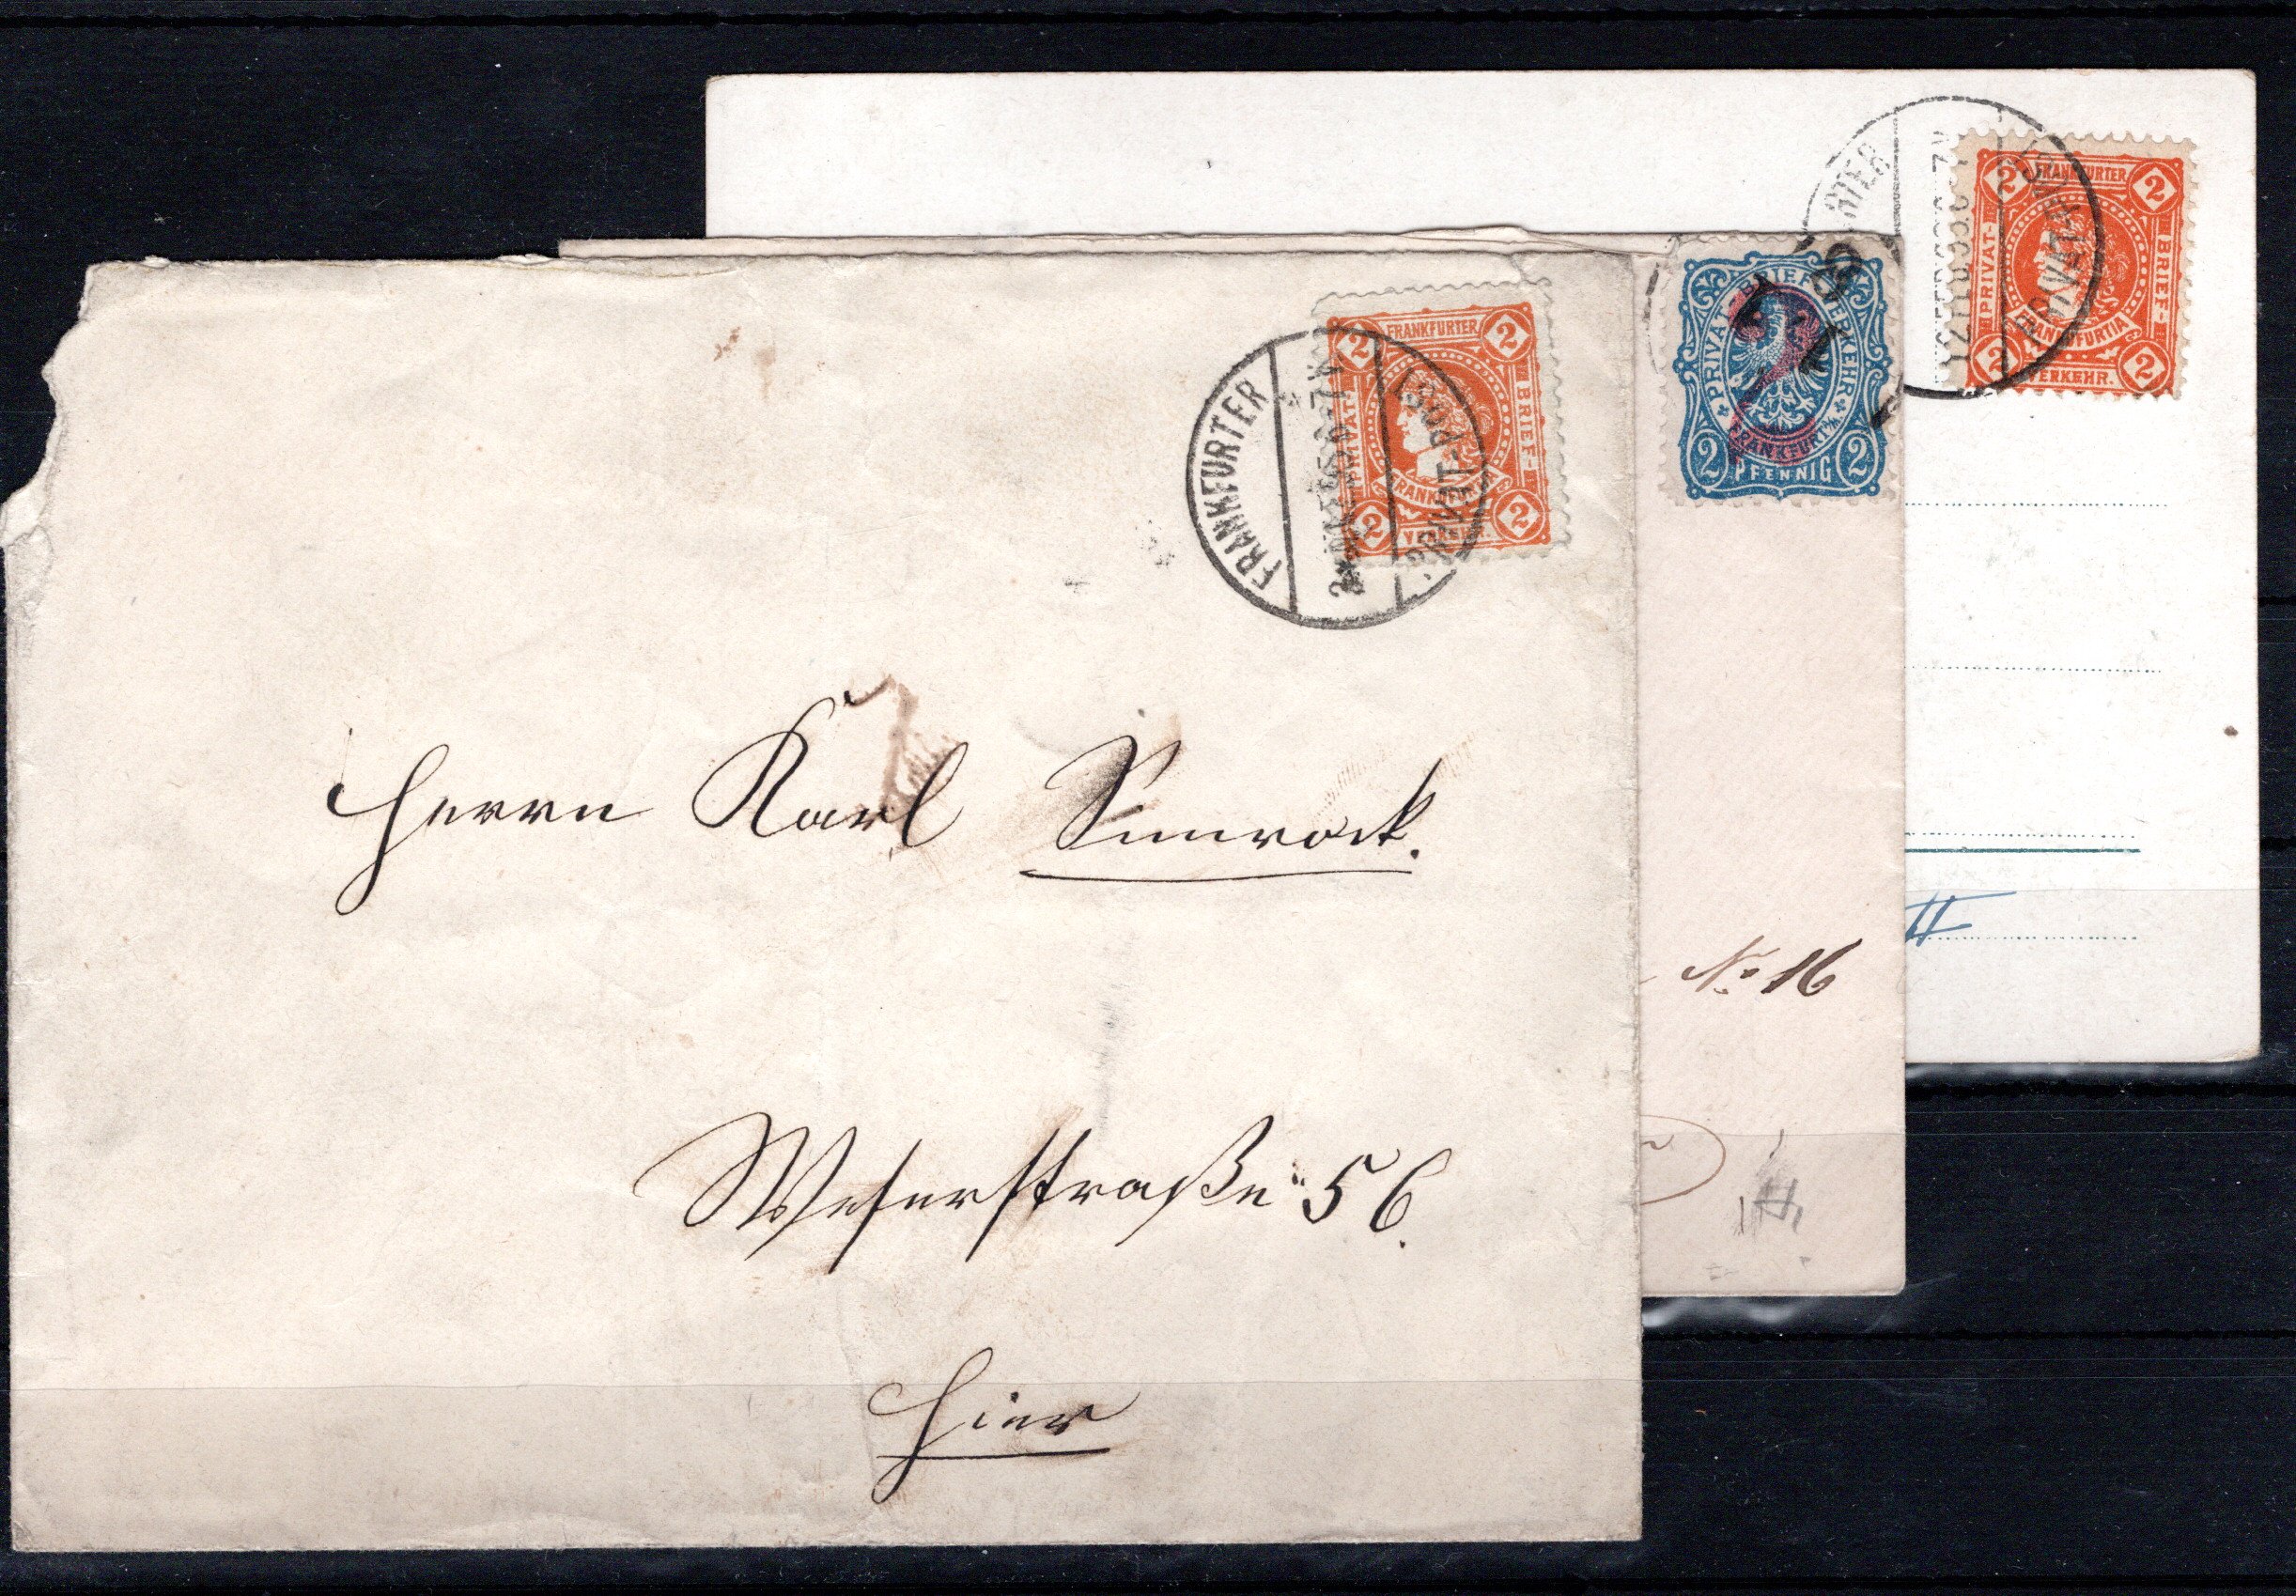 FRANKFURTER
PRIVAT-
BRIEF-
FRANKFURTIA
VERKEHR.
2
2
2
2
PRIVAT-BRIEF-VERKEHR
FRANKFURT a/M
2 PFENNIG 2
2
FRANKFURTER
PRIVAT-
BRIEF-
VERKEHR.
2
2
2
2
FRANKFURTER
PRIVAT-POST
Herrn Karl Simrock.
No 16
Weserstraße 56.
Hier
II